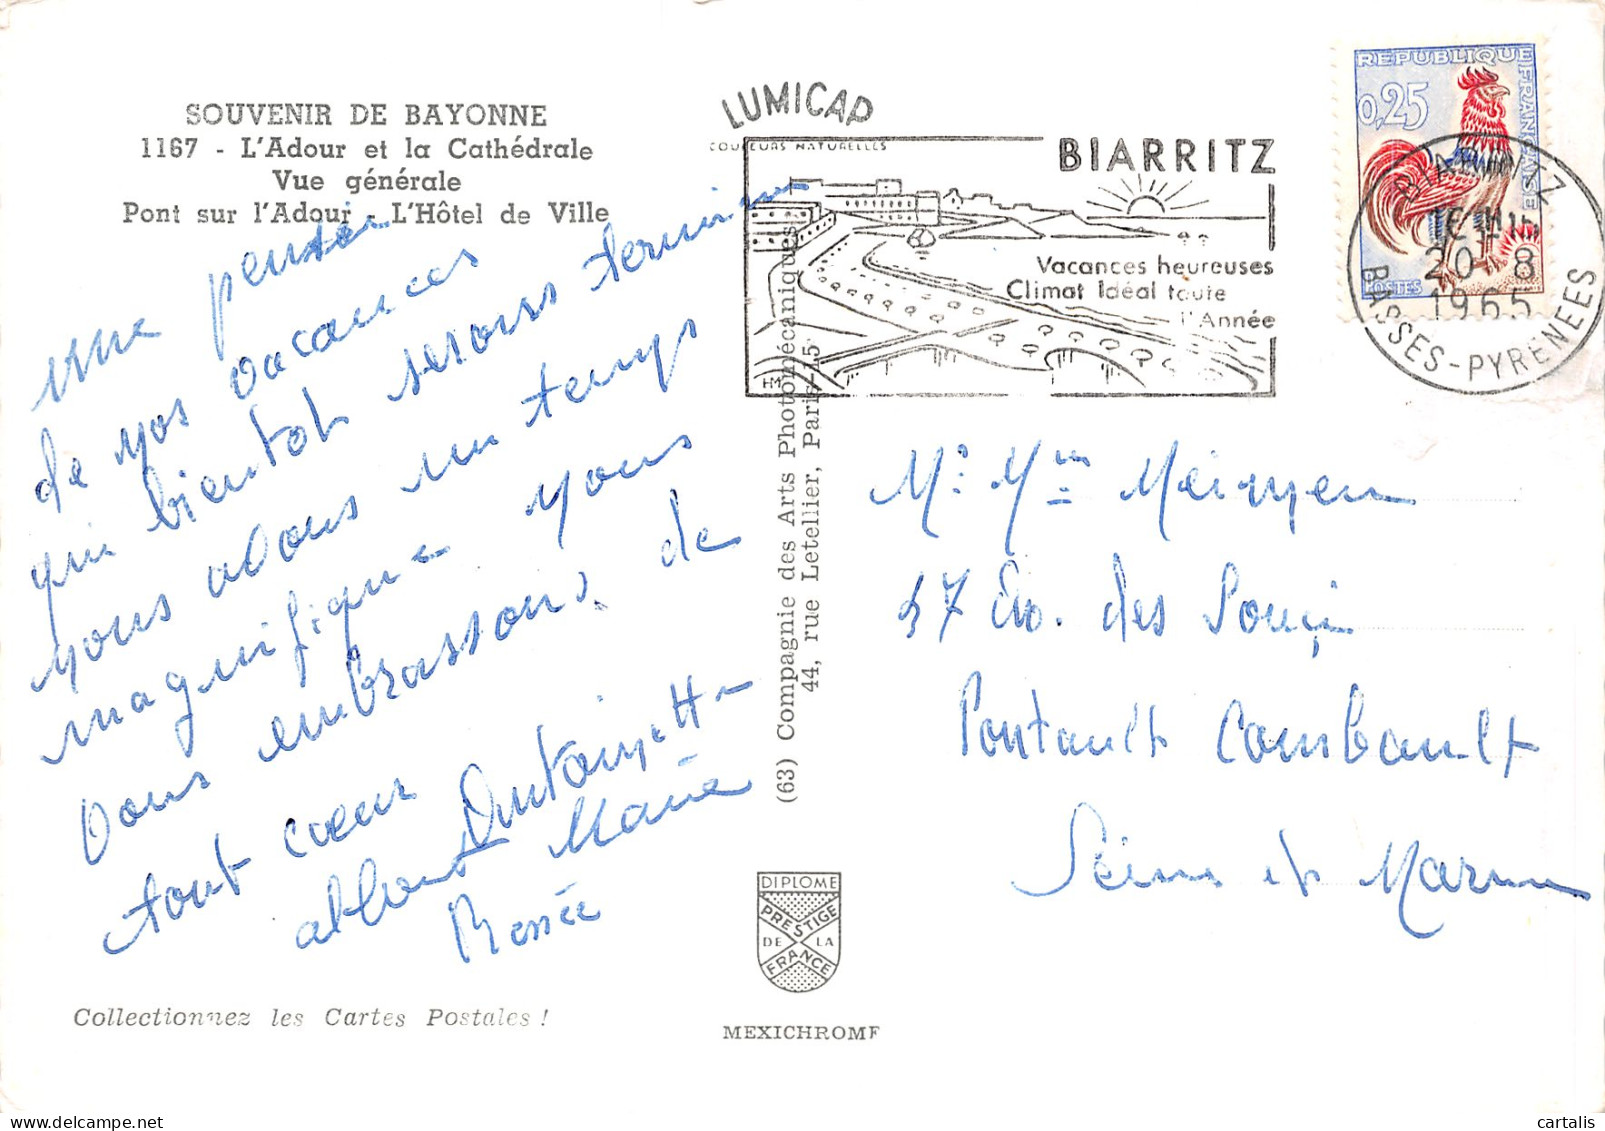 SOUVENIR DE BAYONNE
1167 - L'Adour et la Cathédrale
Vue générale
Pont sur l'Adour - L'Hôtel de Ville
une pensée
de nos vacances
qui bientôt serons terminer
nous avons un temps
magnifique nous
vous embrassons de
tout cœur Antoinette
albert Marie
Renée
Collectionnez les Cartes Postales !
LUMICAP
COULEURS NATURELLES
BIARRITZ
Vacances heureuses
Climat Idéal toute
l'Année
HM
REPUBLIQUE FRANÇAISE
0,25
POSTES
BIARRITZ
20 - 8
1965
BASSES-PYRENEES
(63) Compagnie des Arts Photomécaniques
44, rue Letellier, Paris-15
DIPLOME
PRESTIGE
DE LA
FRANCE
MEXICHROME
Mr Mme
37 des
Pontault Combault
Seine et Marne
cartalis